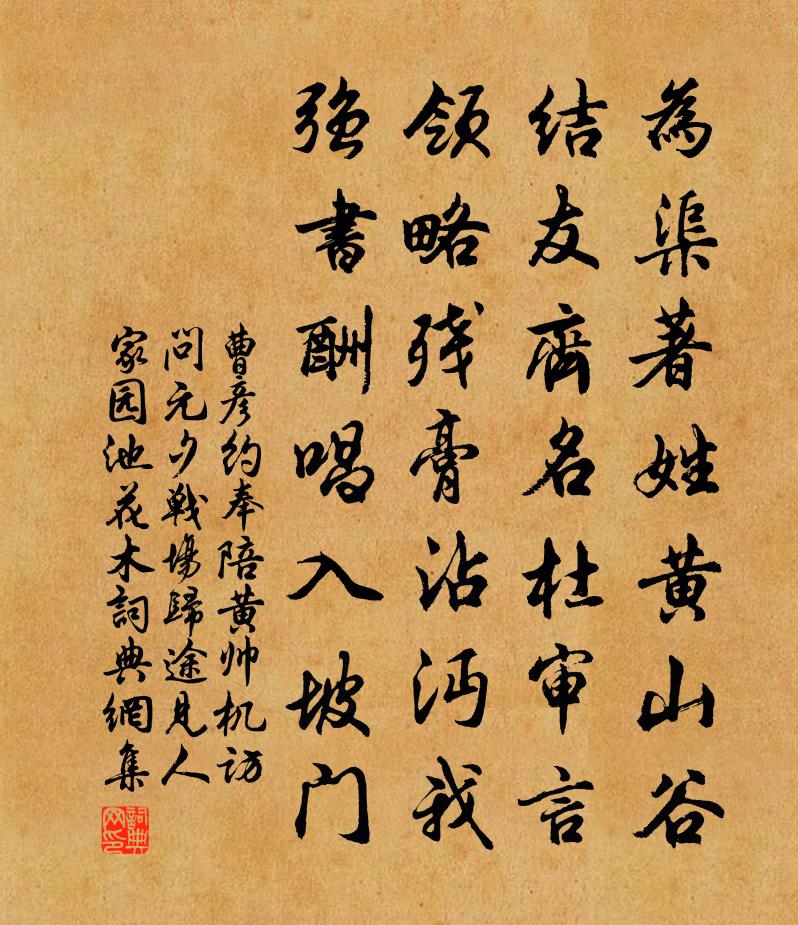 為渠著姓黄山谷
结友齊名杜审言
领略残膏沾沔我
强書酬唱入坡门
曹彦约奉陪黄帅机访
问元夕戰場歸途見人
家园池花木詞典網集
詞典网印